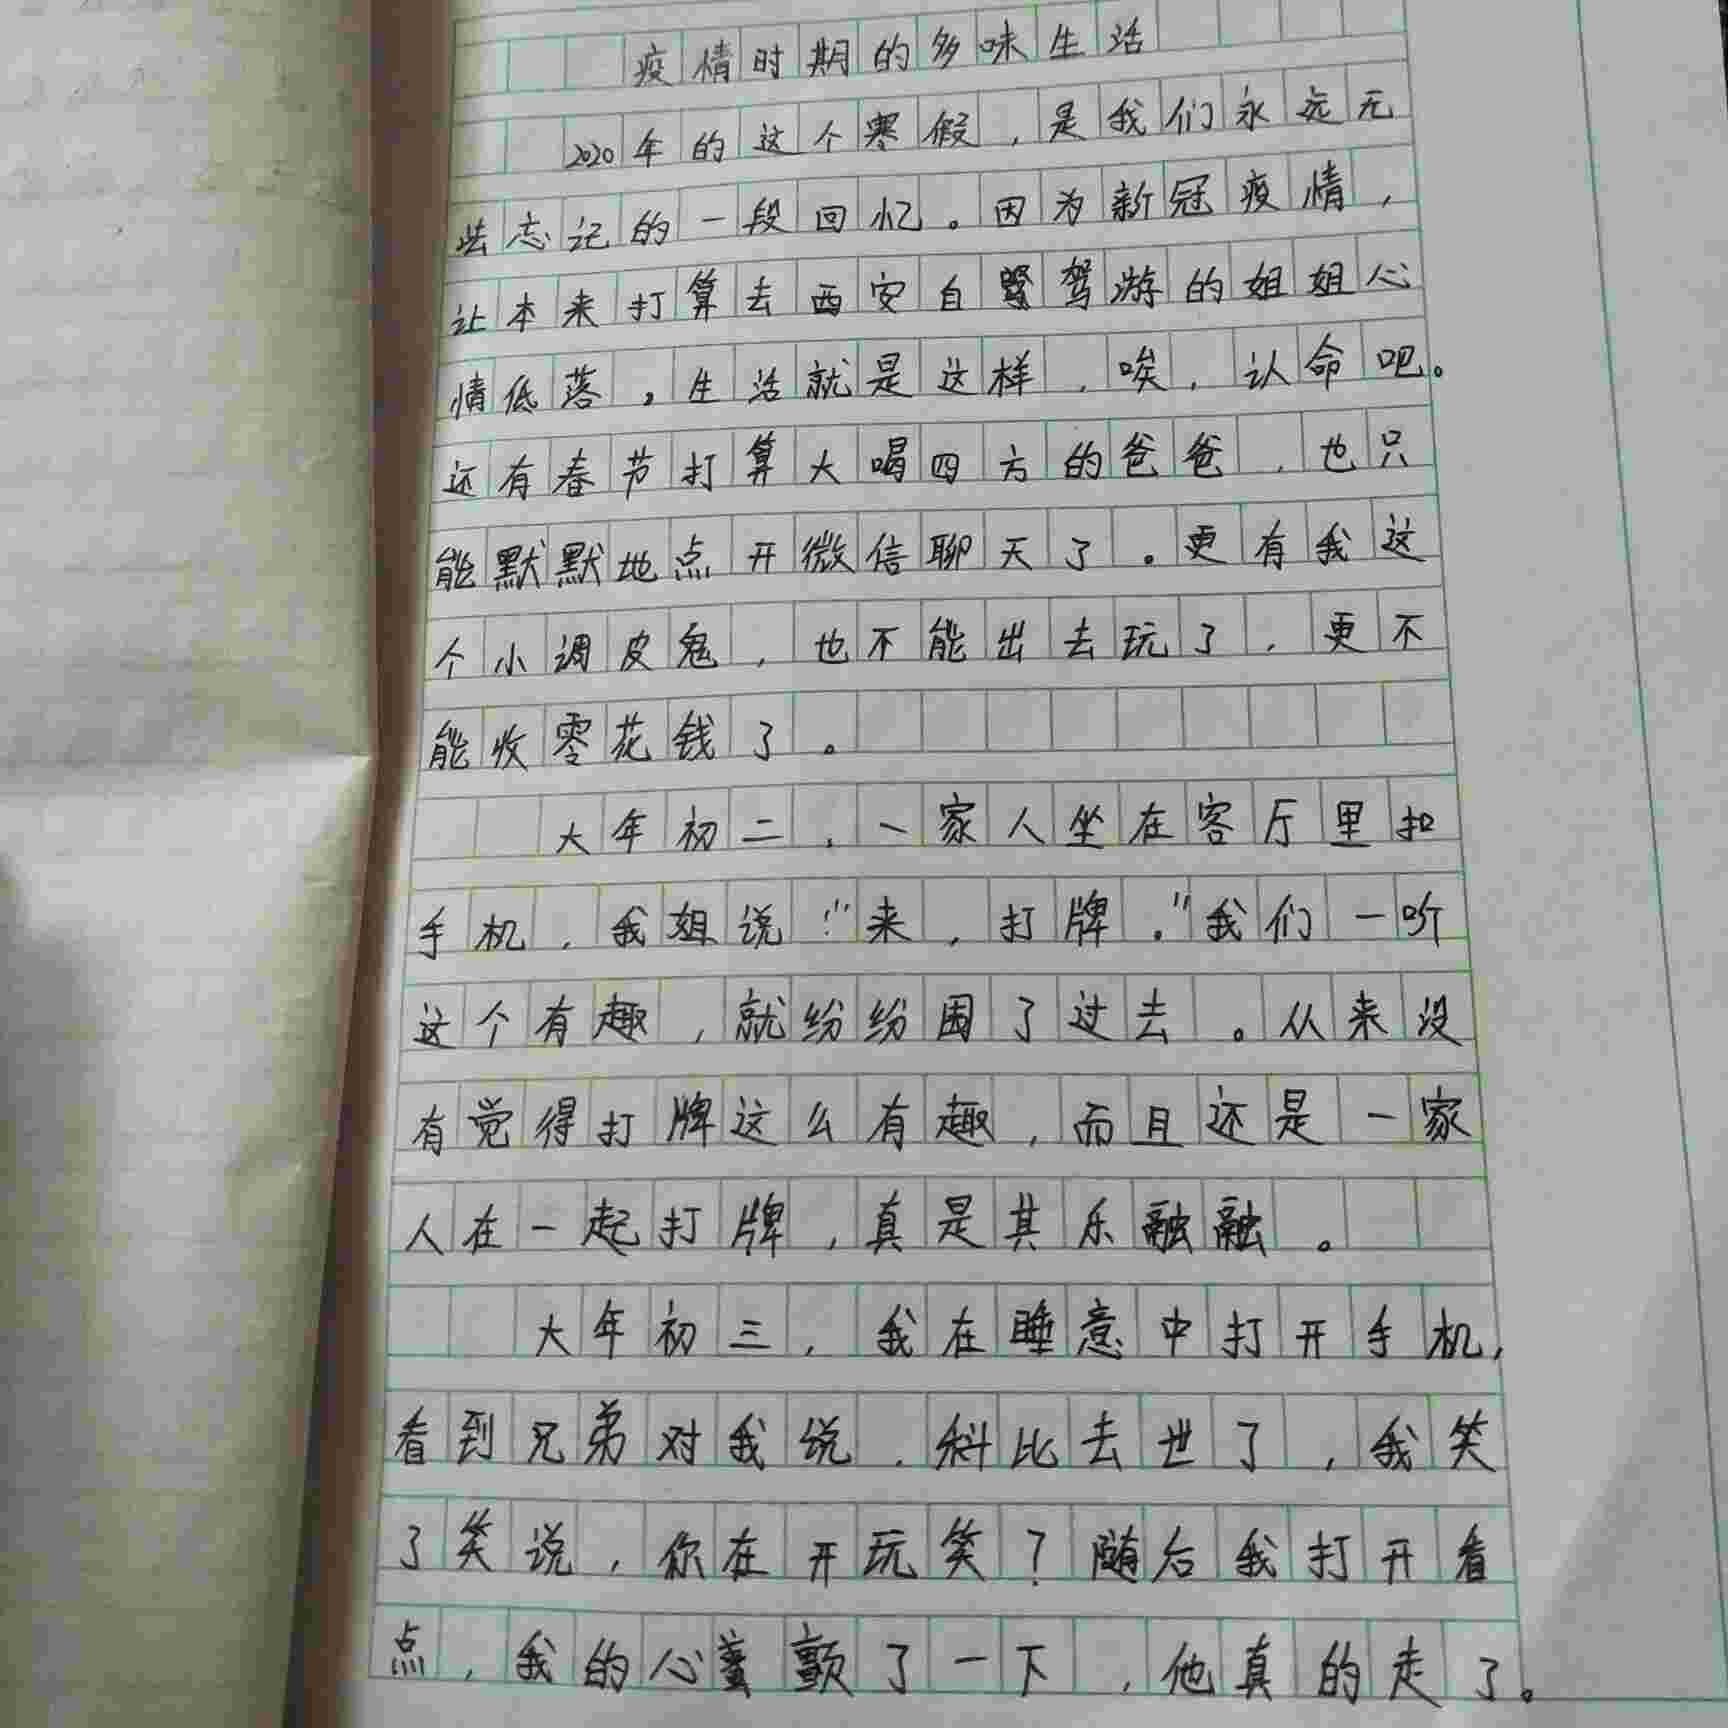 疫情时期的多味生活
2020年的这个寒假，是我们永远无
法忘记的一段回忆。因为新冠疫情，
让本来打算去西安自驾游的姐姐心
情低落。生活就是这样，唉，认命吧。
还有春节打算大喝四方的爸爸，也只
能默默地点开微信聊天了。更有我这
个小调皮鬼，也不能出去玩了，更不
能收零花钱了。
大年初二，一家人坐在客厅里扣
手机，我姐说：“来，打牌。”我们一听
这个有趣，就纷纷围了过去。从来没
有觉得打牌这么有趣，而且还是一家
人在一起打牌，真是其乐融融。
大年初三，我在睡意中打开手机，
看到兄弟对我说，科比去世了，我笑
了笑说，你在开玩笑？随后我打开看
点，我的心颤了一下，他真的走了。